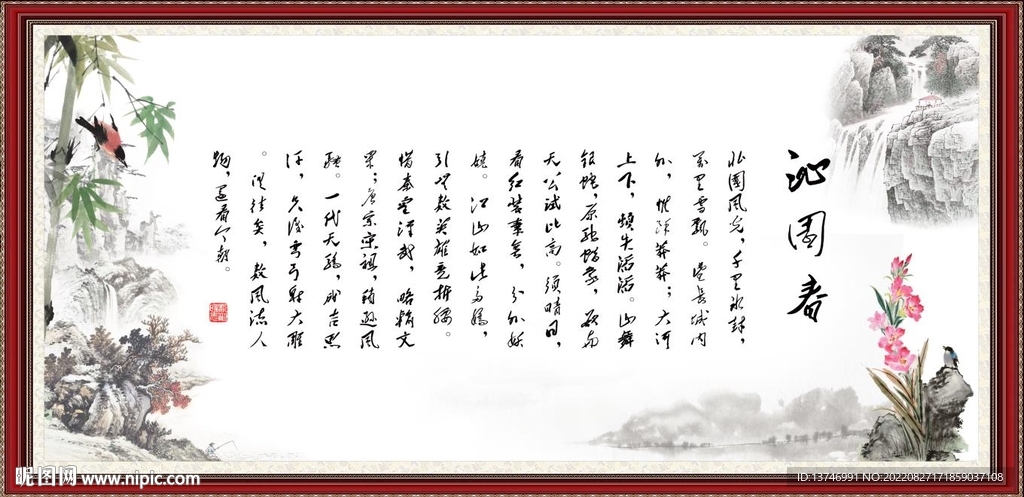 沁園春
北國風光，千里冰封，
萬里雪飄。望長城内
外，惟餘莽莽；大河
上下，頓失滔滔。山舞
銀蛇，原馳蠟象，欲與
天公試比高。須晴日，
看紅裝素裹，分外妖
嬈。江山如此多嬌，
引無數英雄競折腰。
惜秦皇漢武，略輸文
采；唐宗宋祖，稍遜風
騷。一代天驕，成吉思
汗，只識彎弓射大雕
。俱往矣，數風流人
物，還看今朝。
昵图网 www.nipic.com
ID:13746991 NO:20220827171859037108